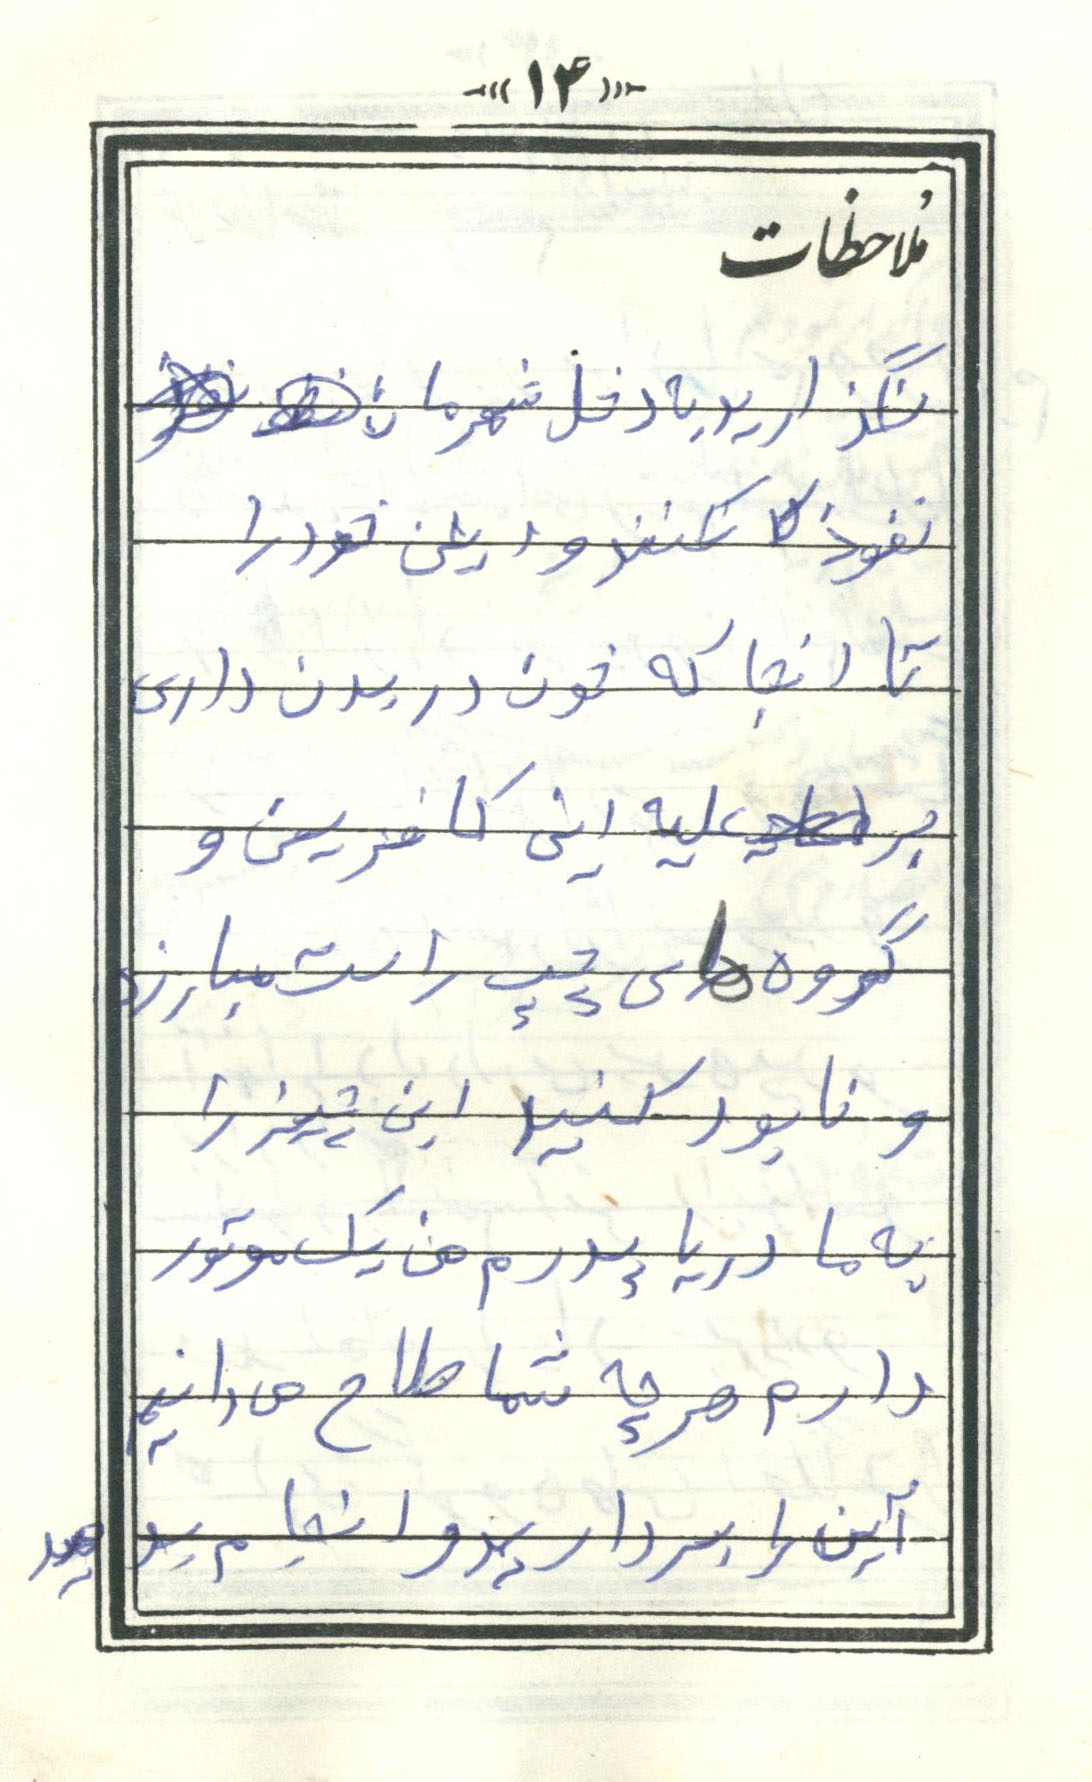 ۱۴
ملاحظات
نگذارید به داخل شهرمان
نفوذ کنند و دین خود را
تا انجا که خون در بدن داری
بر علیه اینی کافرین و
گووه های چپ راست مبارزه
و نابود کنید این چیز را
به مادر یا پدرم من یک موتور
دارم هر چه شما طلاح می دانیم
آین را بردارید و انجام بدهید